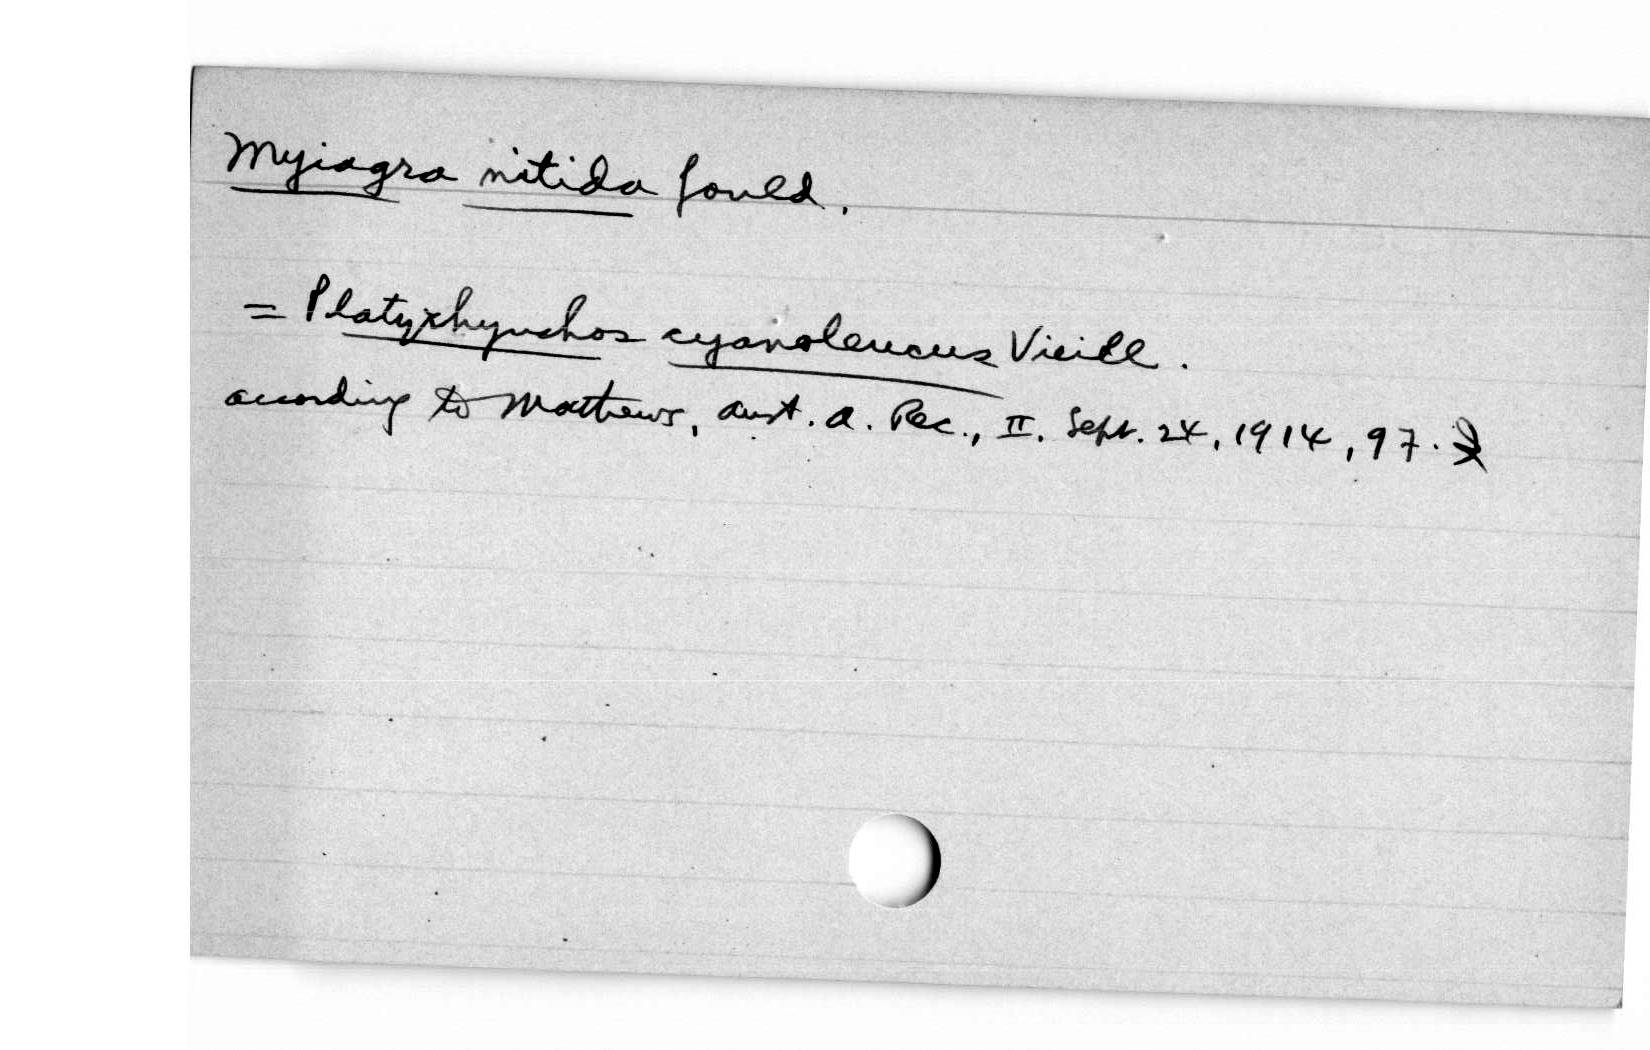 Myiagra nitida Gould.
= Platyrhynchos cyanoleucus Vieill.
according to Mathews, Aust. A. Rec., II. Sept. 24, 1914, 97.